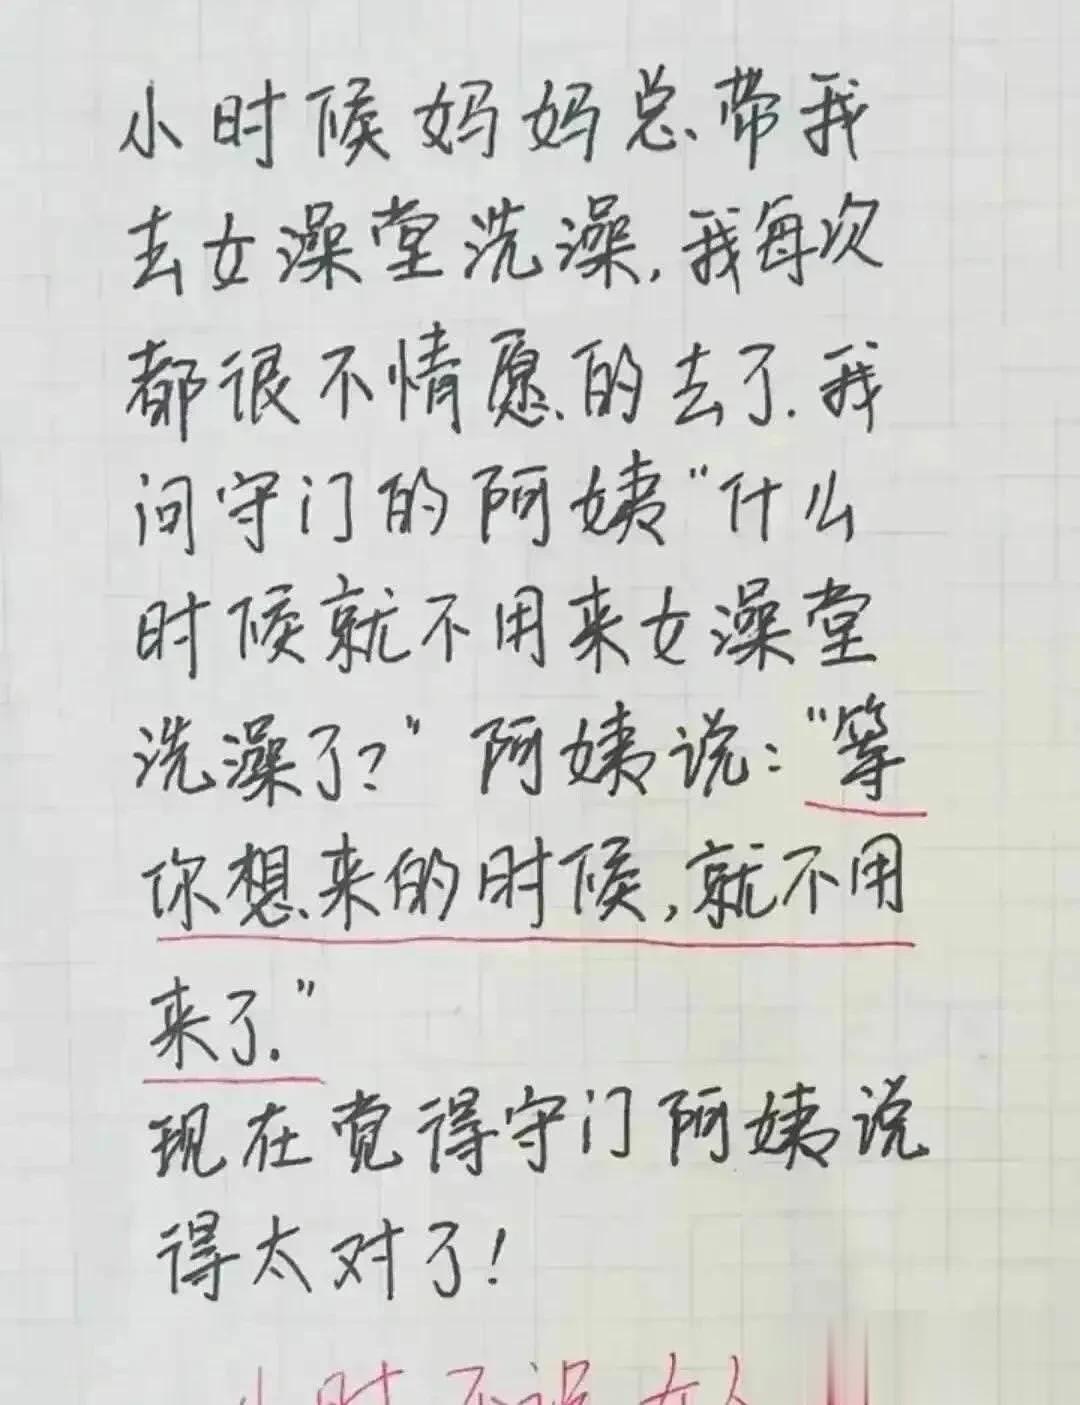 小时候妈妈总带我
去女澡堂洗澡,我每次
都很不情愿的去了.我
问守门的阿姨"什么
时候就不用来女澡堂
洗澡了?"阿姨说:"等
你想来的时候,就不用
来了."
现在觉得守门阿姨说
得太对了!
小时不识女人